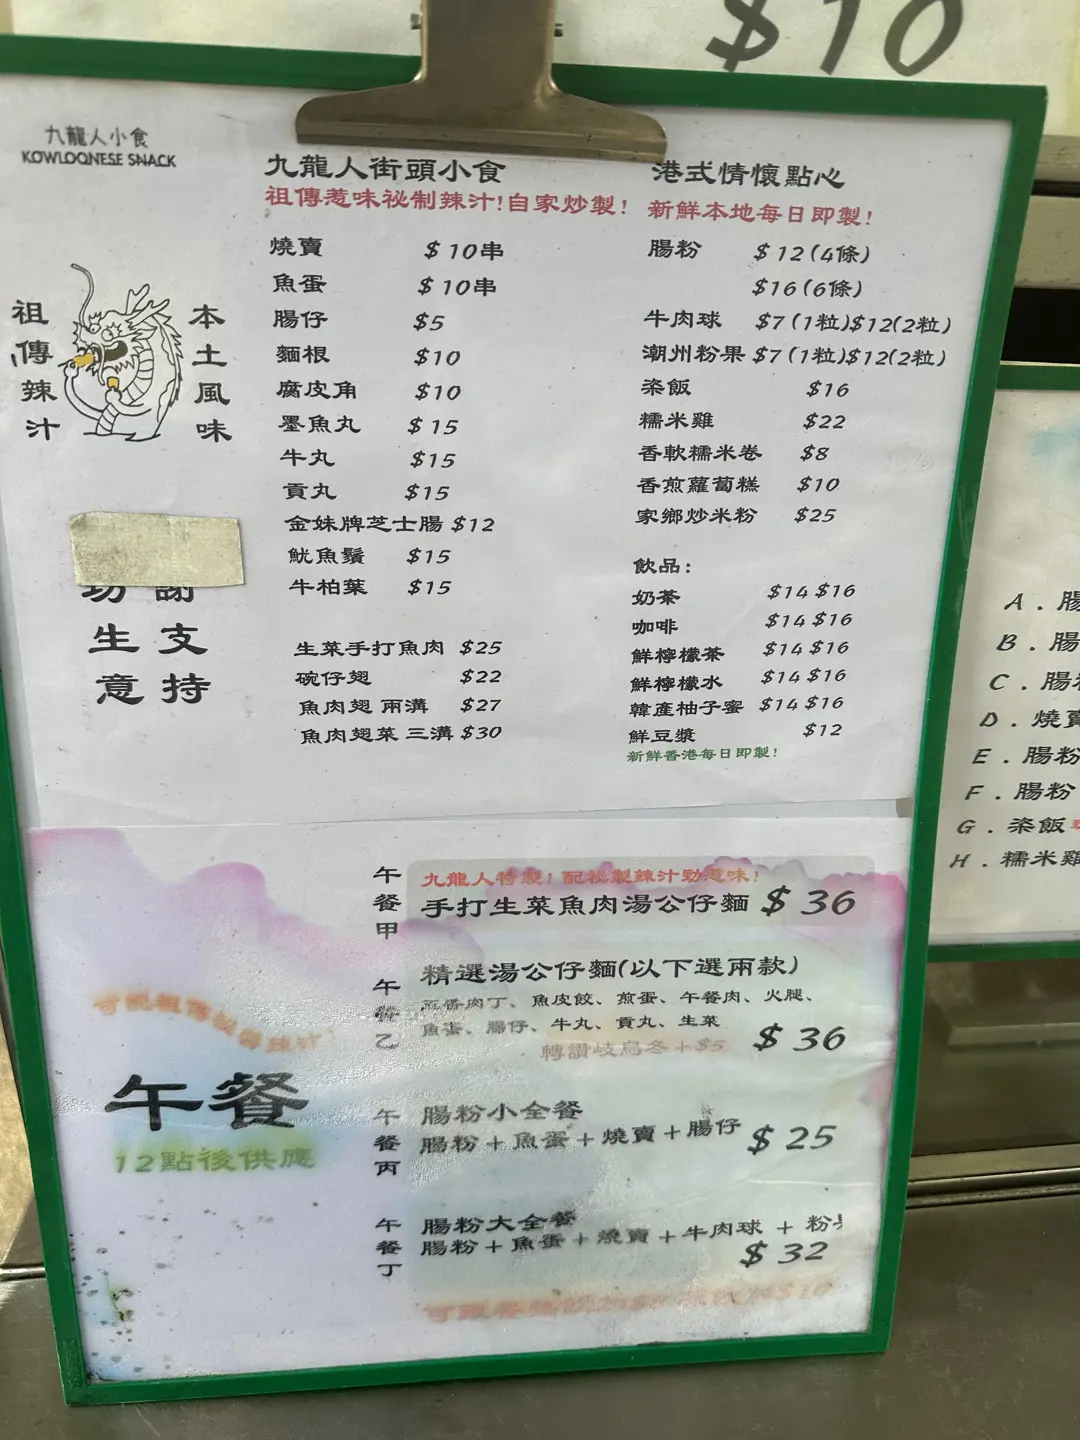 $10
九龍人小食
KOWLOONESE SNACK
祖傳辣汁
本土風味
謝
生 支
意 持
九龍人街頭小食
祖傳惹味祕制辣汁!自家炒製!
燒賣 $10串
魚蛋 $10串
腸仔 $5
麵根 $10
腐皮角 $10
墨魚丸 $15
牛丸 $15
貢丸 $15
金妹牌芝士腸 $12
魷魚鬚 $15
牛柏葉 $15
生菜手打魚肉 $25
碗仔翅 $22
魚肉翅 兩溝 $27
魚肉翅菜 三溝 $30
港式情懷點心
新鮮本地每日即製!
腸粉 $12(4條)
$16(6條)
牛肉球 $7(1粒)$12(2粒)
潮州粉果 $7(1粒)$12(2粒)
染飯 $16
糯米雞 $22
香軟糯米卷 $8
香煎蘿蔔糕 $10
家鄉炒米粉 $25
飲品:
奶茶 $14 $16
咖啡 $14 $16
鮮檸檬茶 $14 $16
鮮檸檬水 $14 $16
韓產柚子蜜 $14 $16
鮮豆漿 $12
新鮮香港每日即製!
午餐
12點後供應
午餐甲
九龍人特製! 配祕製辣汁勁惹味!
手打生菜魚肉湯公仔麵 $36
午餐乙
精選湯公仔麵(以下選兩款)
肉丁、魚皮餃、煎蛋、午餐肉、火腿、
魚蛋、腸仔、牛丸、貢丸、生菜
轉讚岐烏冬+$5
$36
午餐丙
腸粉小全餐
腸粉+魚蛋+燒賣+腸仔 $25
午餐丁
腸粉大全餐
腸粉+魚蛋+燒賣+牛肉球 + 粉
$32
A . 腸
B . 腸
C . 腸
D . 燒賣
E . 腸粉
F . 腸粉
G . 染飯
H . 糯米雞